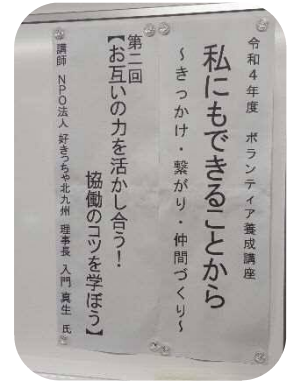 令和4年度 ボランティア養成講座
私にもできることから
～きっかけ・繋がり・仲間づくり～
第二回
【お互いの力を活かし合う！
協働のコツを学ぼう】
講師 NPO法人 好きっちゃ北九州 理事長 入門 真生 氏